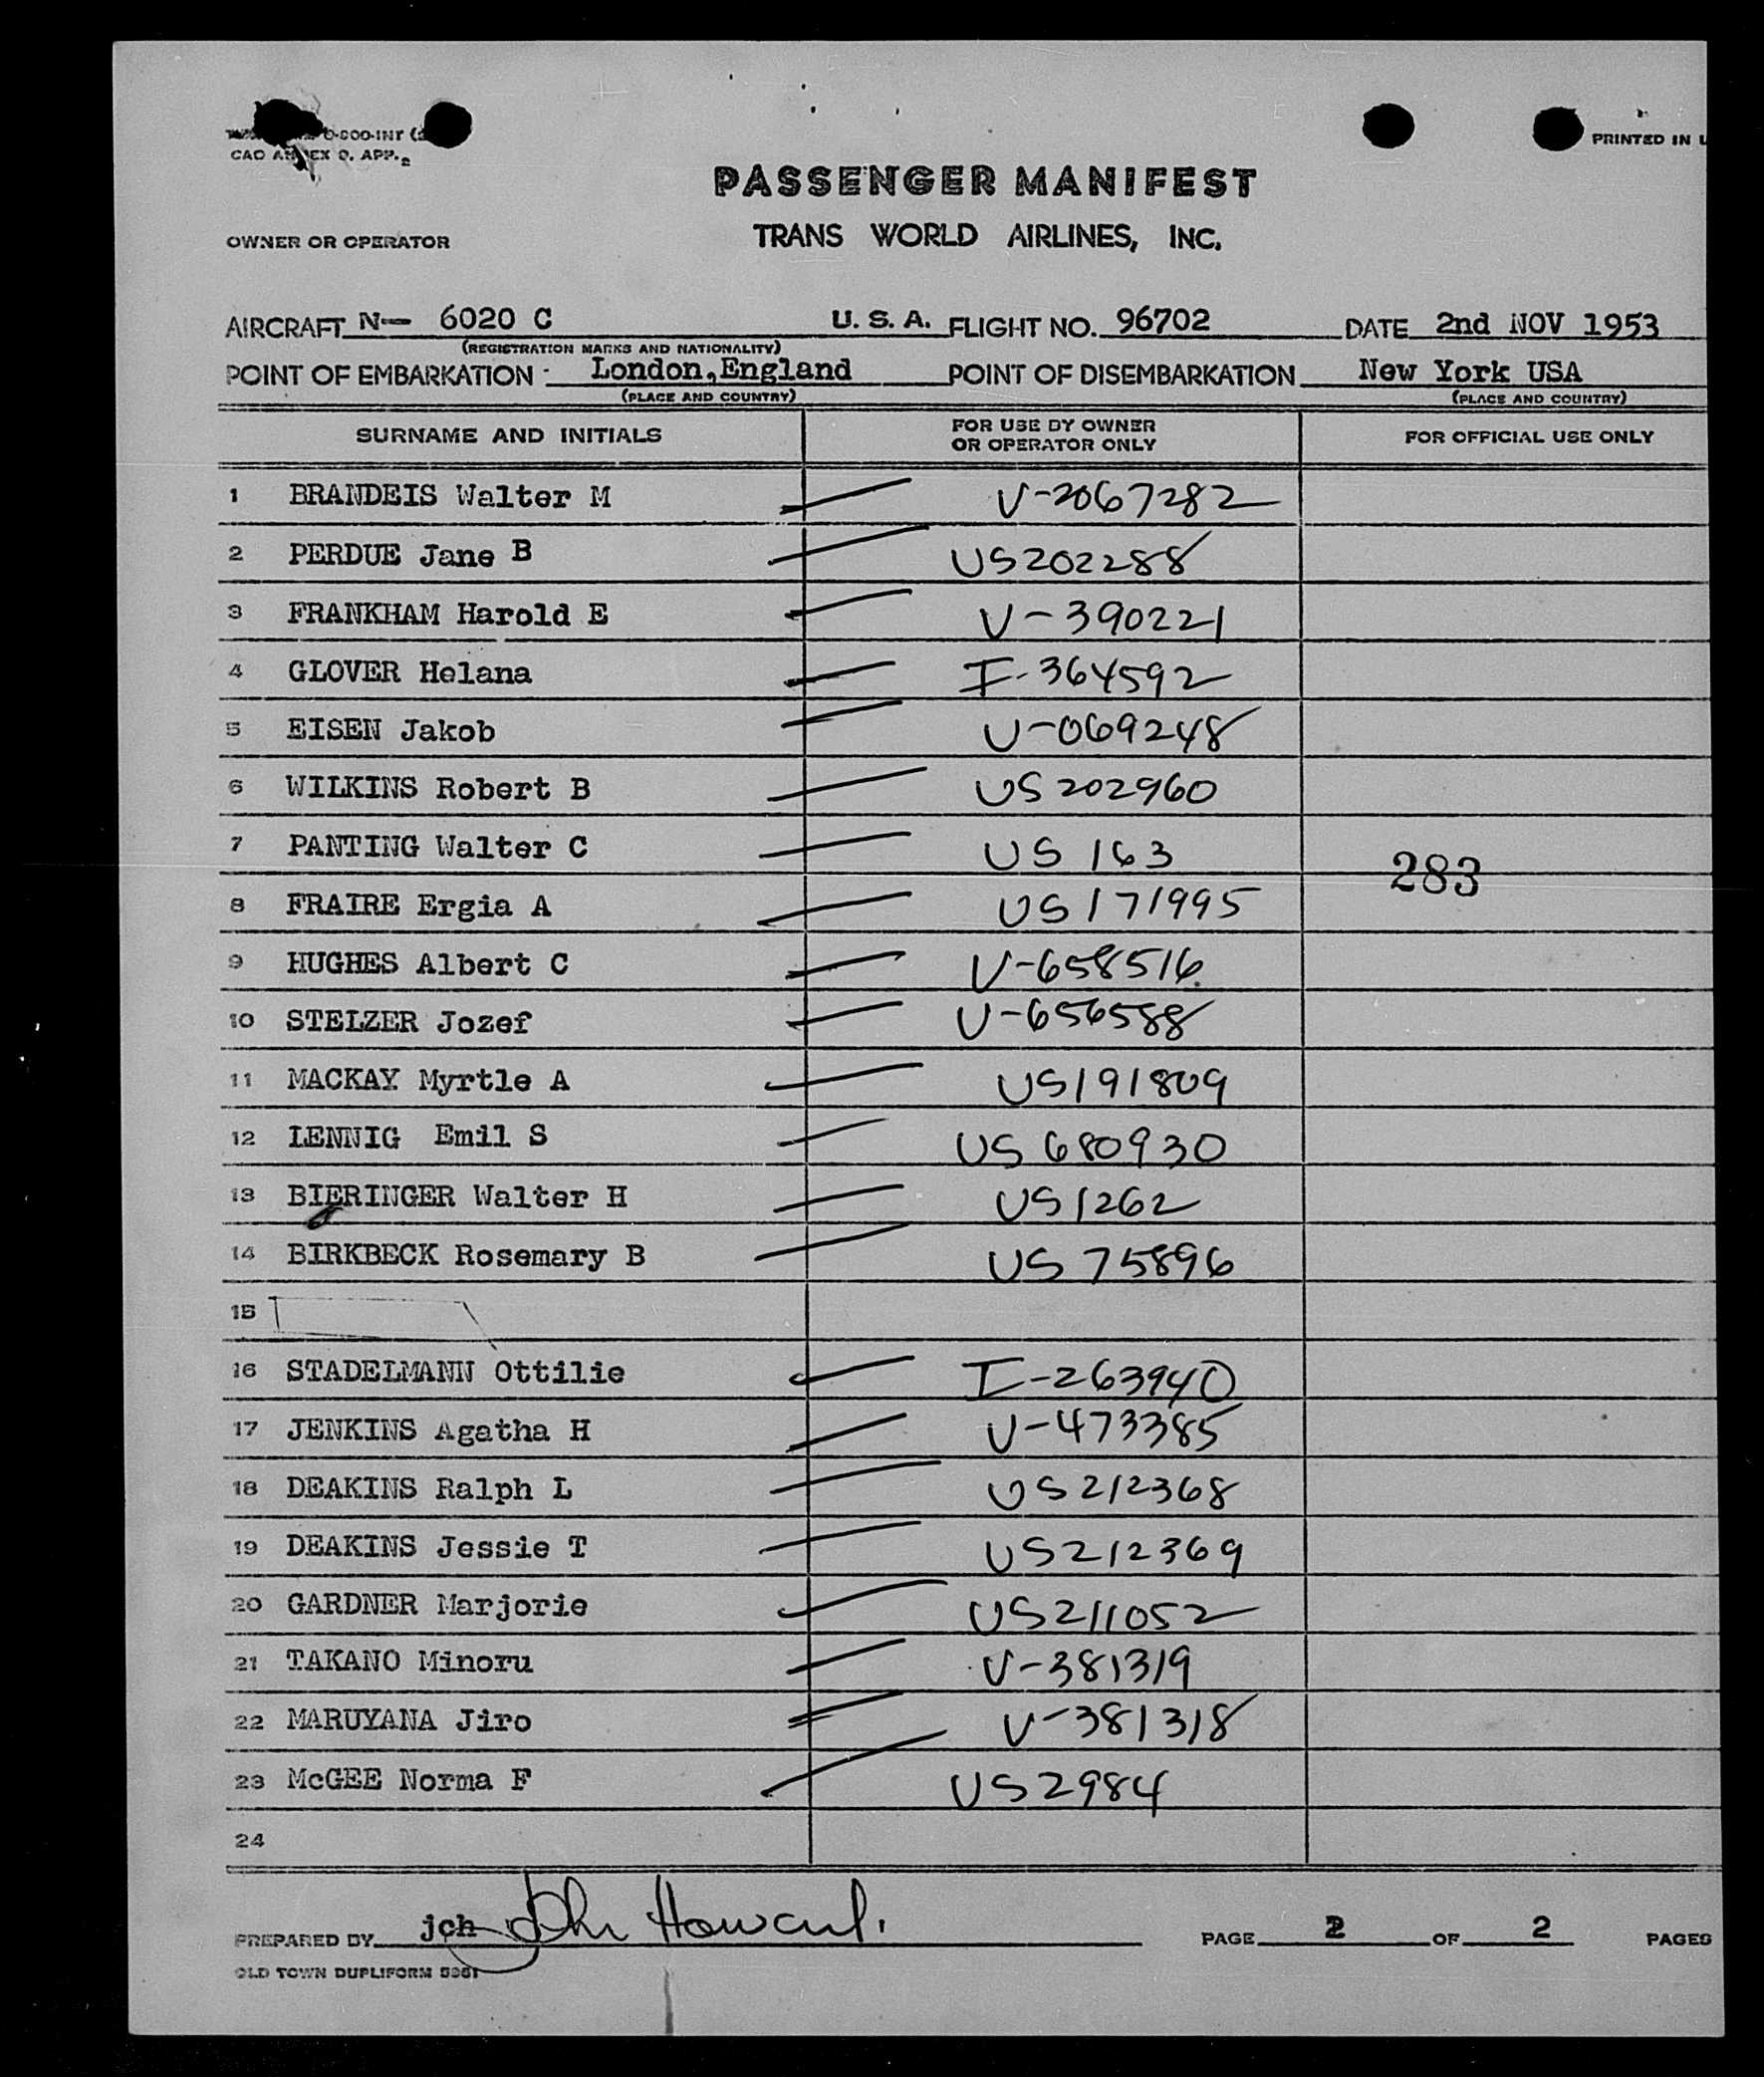 O-800-INT
CAO ANNEX 9. APP. 2
PRINTED IN U
PASSENGER MANIFEST
OWNER OR OPERATOR TRANS WORLD AIRLINES, INC.
AIRCRAFT N- 6020 C U. S. A. FLIGHT NO. 96702 DATE 2nd NOV 1953
(REGISTRATION MARKS AND NATIONALITY)
POINT OF EMBARKATION London,England POINT OF DISEMBARKATION New York USA
(PLACE AND COUNTRY) (PLACE AND COUNTRY)
SURNAME AND INITIALS FOR USE BY OWNER OR OPERATOR ONLY FOR OFFICIAL USE ONLY
1 BRANDEIS Walter M V-2067282
2 PERDUE Jane B US202288
3 FRANKHAM Harold E V-390221
4 GLOVER Helana I-364592
5 EISEN Jakob V-069248
6 WILKINS Robert B US 202960
7 PANTING Walter C US 163
283
8 FRAIRE Ergia A US171995
9 HUGHES Albert C V-658516
10 STELZER Jozef V-656588
11 MACKAY Myrtle A US191809
12 LENNIG Emil S US 680930
13 BIERINGER Walter H US1262
14 BIRKBECK Rosemary B US 75896
15
16 STADELMANN Ottilie I-263940
17 JENKINS Agatha H V-473385
18 DEAKINS Ralph L US212368
19 DEAKINS Jessie T US212369
20 GARDNER Marjorie US211052
21 TAKANO Minoru V-381319
22 MARUYANA Jiro V-381318
23 McGEE Norma F US2984
24
PREPARED BY jch John Howard. PAGE 2 OF 2 PAGES
OLD TOWN DUPLIFORM